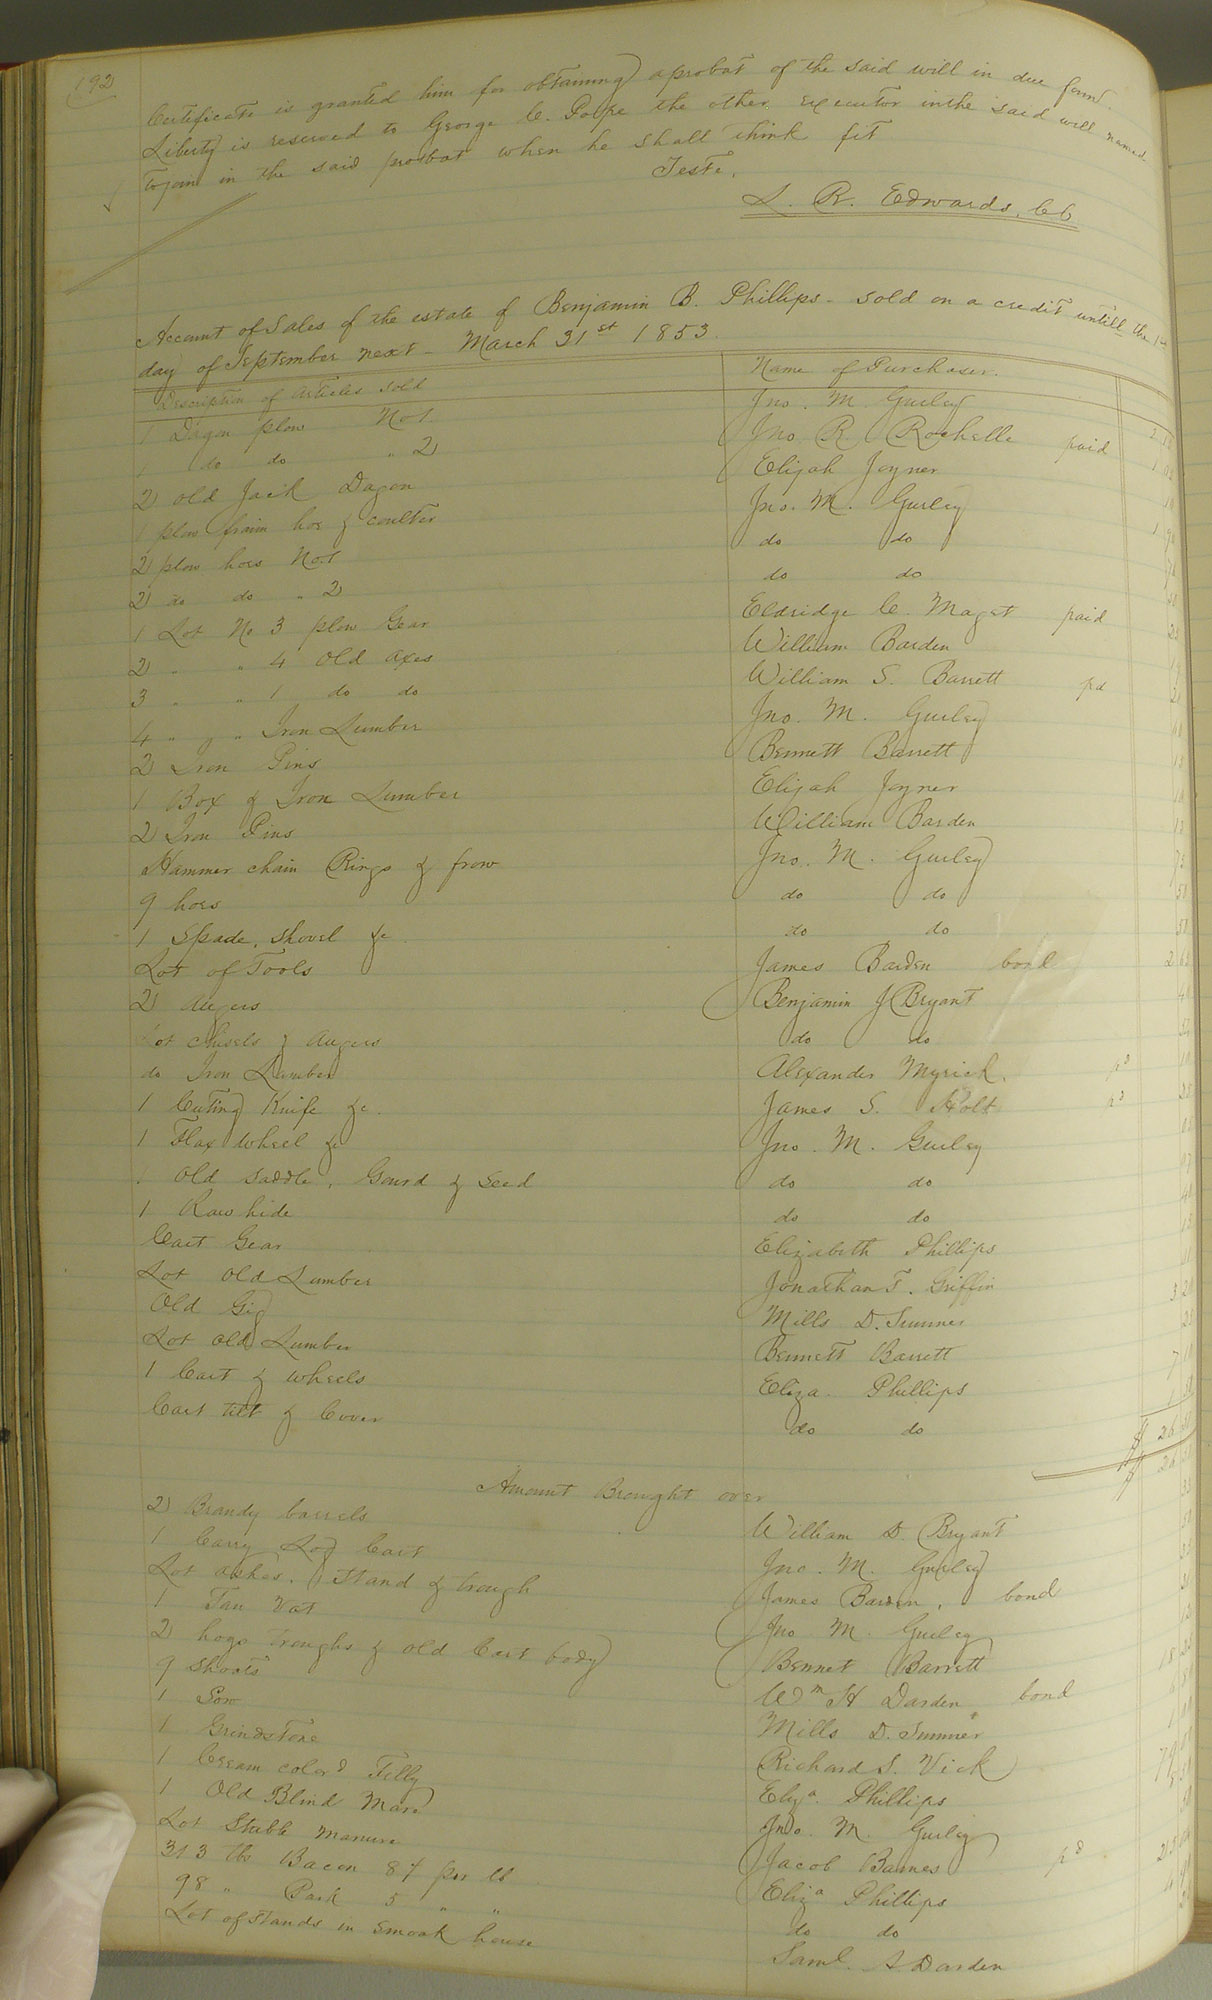 192
Certificate is granted him for obtaining a probat of the said will in due form.
Liberty is reserved to George C. Pope the other executor in the said will named
to join in the said probat when he shall think fit
Teste,
L. R. Edwards, CC
Account of Sales of the estate of Benjamin B. Phillips - sold on a credit untill the 1st
day of September next - March 31st 1853.
Description of articles sold Name of Purchaser.
1 Dagon plow No 1 Jno. M. Gurley
1 do do " 2 Jno. R. Rochelle paid
2 old Jack Dagon Elijah Joyner
1 plow fraim hoe & coulter Jno. M. Gurley
2 plow hoes No 1 do do
2 do do " 2 do do
1 Lot No 3 plow Gear Eldridge C. Maget paid
2 " " 4 old axes William Barden
3 " " 1 do do William S. Barrett pd
4 " " Iron Lumber Jno. M. Gurley
2 Iron Pins Bennett Barrett
1 Box of Iron Lumber Elijah Joyner
2 Iron Pins William Barden
Hammer chain Rings & frow Jno. M. Gurley
9 hoes do do
1 Spade, shovel &c. do do
Lot of Tools James Barden bond
2 augers Benjamin J Bryant
Lot chisels & augers do do
do Iron Lumber Alexander Myrick. pd
1 Cuting Knife &c. James S. Holt pd
1 Flax wheel &c Jno. M. Gurley
1 Old Saddle, Gourd & Seed do do
1 Raw hide do do
Cart Gear Elizabeth Phillips
Lot old Lumber Jonathan T. Griffin
Old Gig Mills D. Sumner
Lot old Lumber Bennett Barrett
1 Cart & wheels Eliza. Phillips
Cart tilt & Cover do do
$ 26
Amount Brought over
2 Brandy barrels William D. Bryant
1 Carry Log Cart Jno. M. Gurley
Lot ashes, Stand & trough James Barden, bond
1 Tan Vat Jno M. Gurley
2 hogs troughs & old Cart body Bennet Barrett
9 Shoats Wm H Darden bond
1 Sow Mills D. Sumner
1 Grindstone Richard S. Vick
1 Cream colord Filly Eliza. Phillips
1 Old Blind Mare Jno. M. Gurley
Lot Stable manure Jacob Barnes pd
313 lbs Bacon 8¢ per lb Eliza Phillips
98 " Pork 5 " " do do
Lot of stands in Smoak house Saml. A. Darden